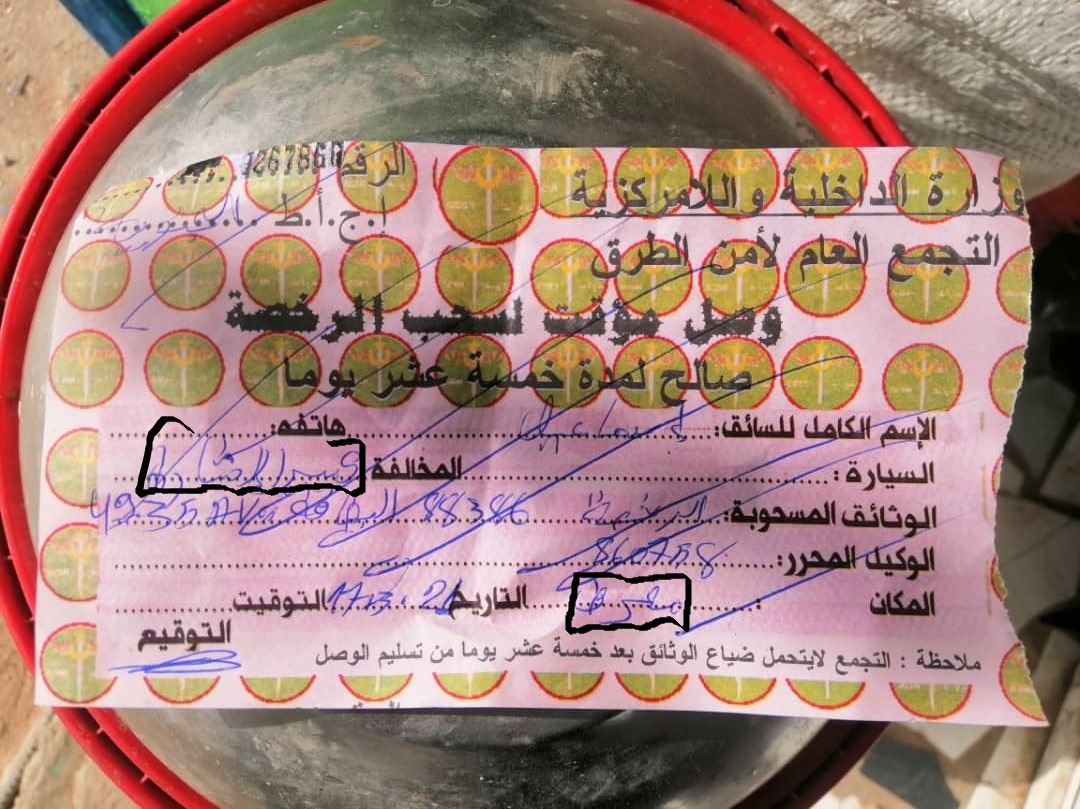 وزارة الداخلية واللامركزية
الرقم 0267860
التجمع العام لأمن الطرق
ا.ج.أ.ط
وصل مؤقت لسحب الرخصة
صالح لمدة خمسة عشر يوما
الإسم الكامل للسائق: هاتفه:
السيارة: المخالفة
الوثائق المسحوبة: الرخصة 88386
الوكيل المحرر: 860758
المكان: التاريخ 17.3.21 التوقيت
التوقيع
ملاحظة : التجمع لايتحمل ضياع الوثائق بعد خمسة عشر يوما من تسليم الوصل